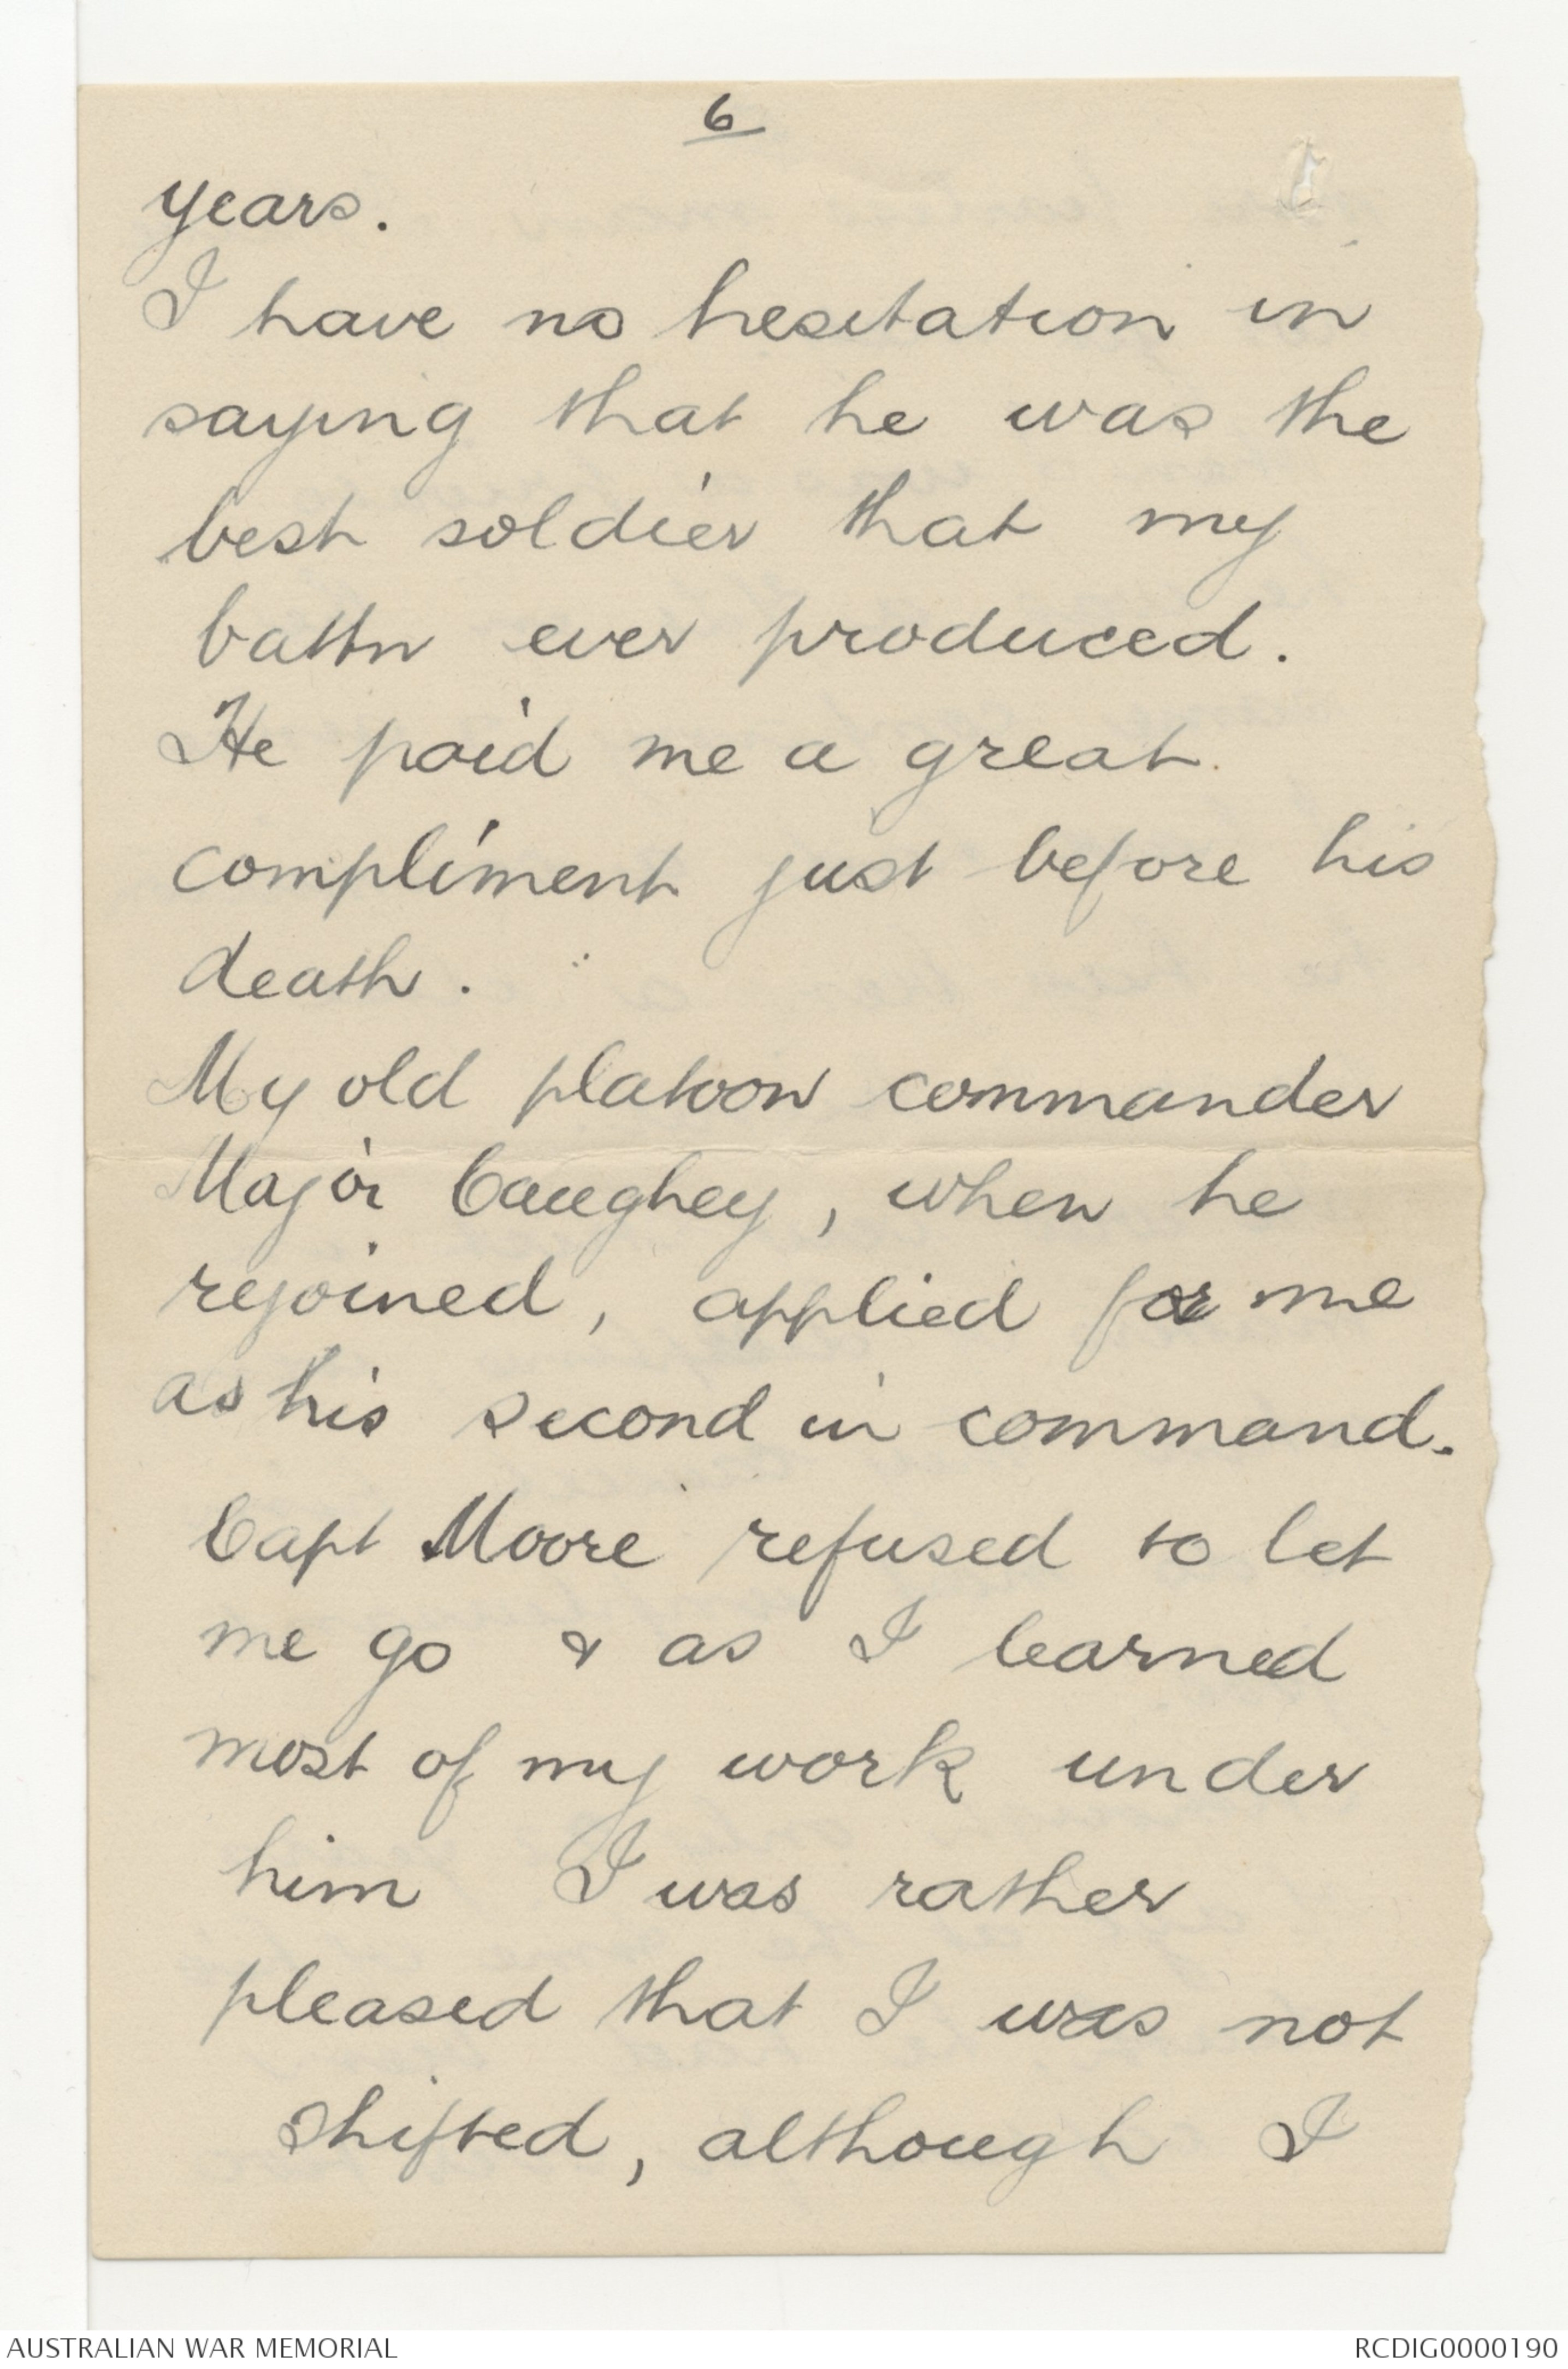 6
years.
I have no hesitation in
saying that he was the
best soldier that my
battn ever produced.
He paid me a great
compliment just before his
death.
My old platoon commander
Major Caughey, when he
rejoined, applied for me
as his second in command.
Capt Moore refused to let
me go & as I learned
most of my work under
him I was rather
pleased that I was not
shifted, although I
AUSTRALIAN WAR MEMORIAL
RCDIG0000190